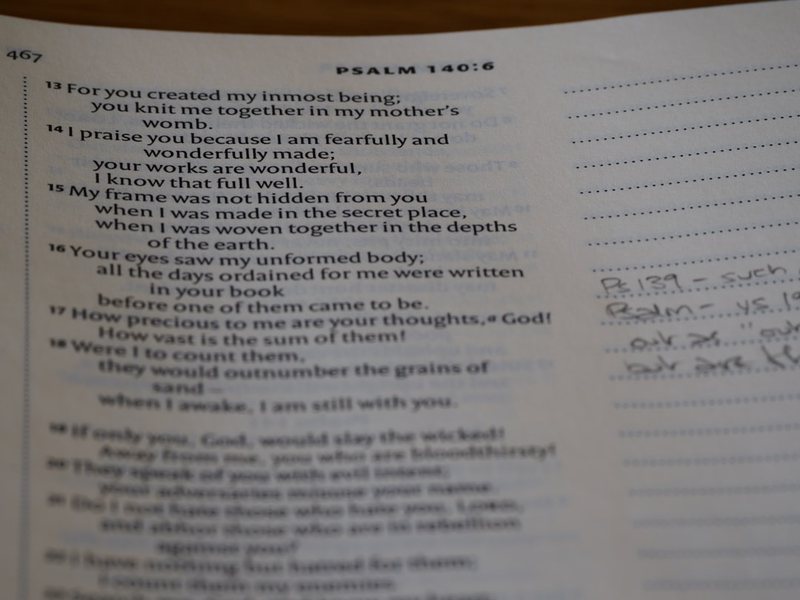 467
PSALM 140:6
13 For you created my inmost being;
you knit me together in my mother's
womb.
14 I praise you because I am fearfully and
wonderfully made;
your works are wonderful,
I know that full well.
15 My frame was not hidden from you
when I was made in the secret place,
when I was woven together in the depths
of the earth.
16 Your eyes saw my unformed body;
all the days ordained for me were written
in your book
before one of them came to be.
17 How precious to me are your thoughts,a God!
How vast is the sum of them!
18 Were I to count them,
they would outnumber the grains of
sand –
when I awake, I am still with you.
19 If only you, God, would slay the wicked!
Away from me, you who are bloodthirsty!
20 They speak of you with evil intent;
your adversaries misuse your name.
21 Do I not hate those who hate you, LORD,
and abhor those who are in rebellion
against you?
22 I have nothing but hatred for them;
I count them my enemies.
Ps 139 – such
Psalm – vs
but are